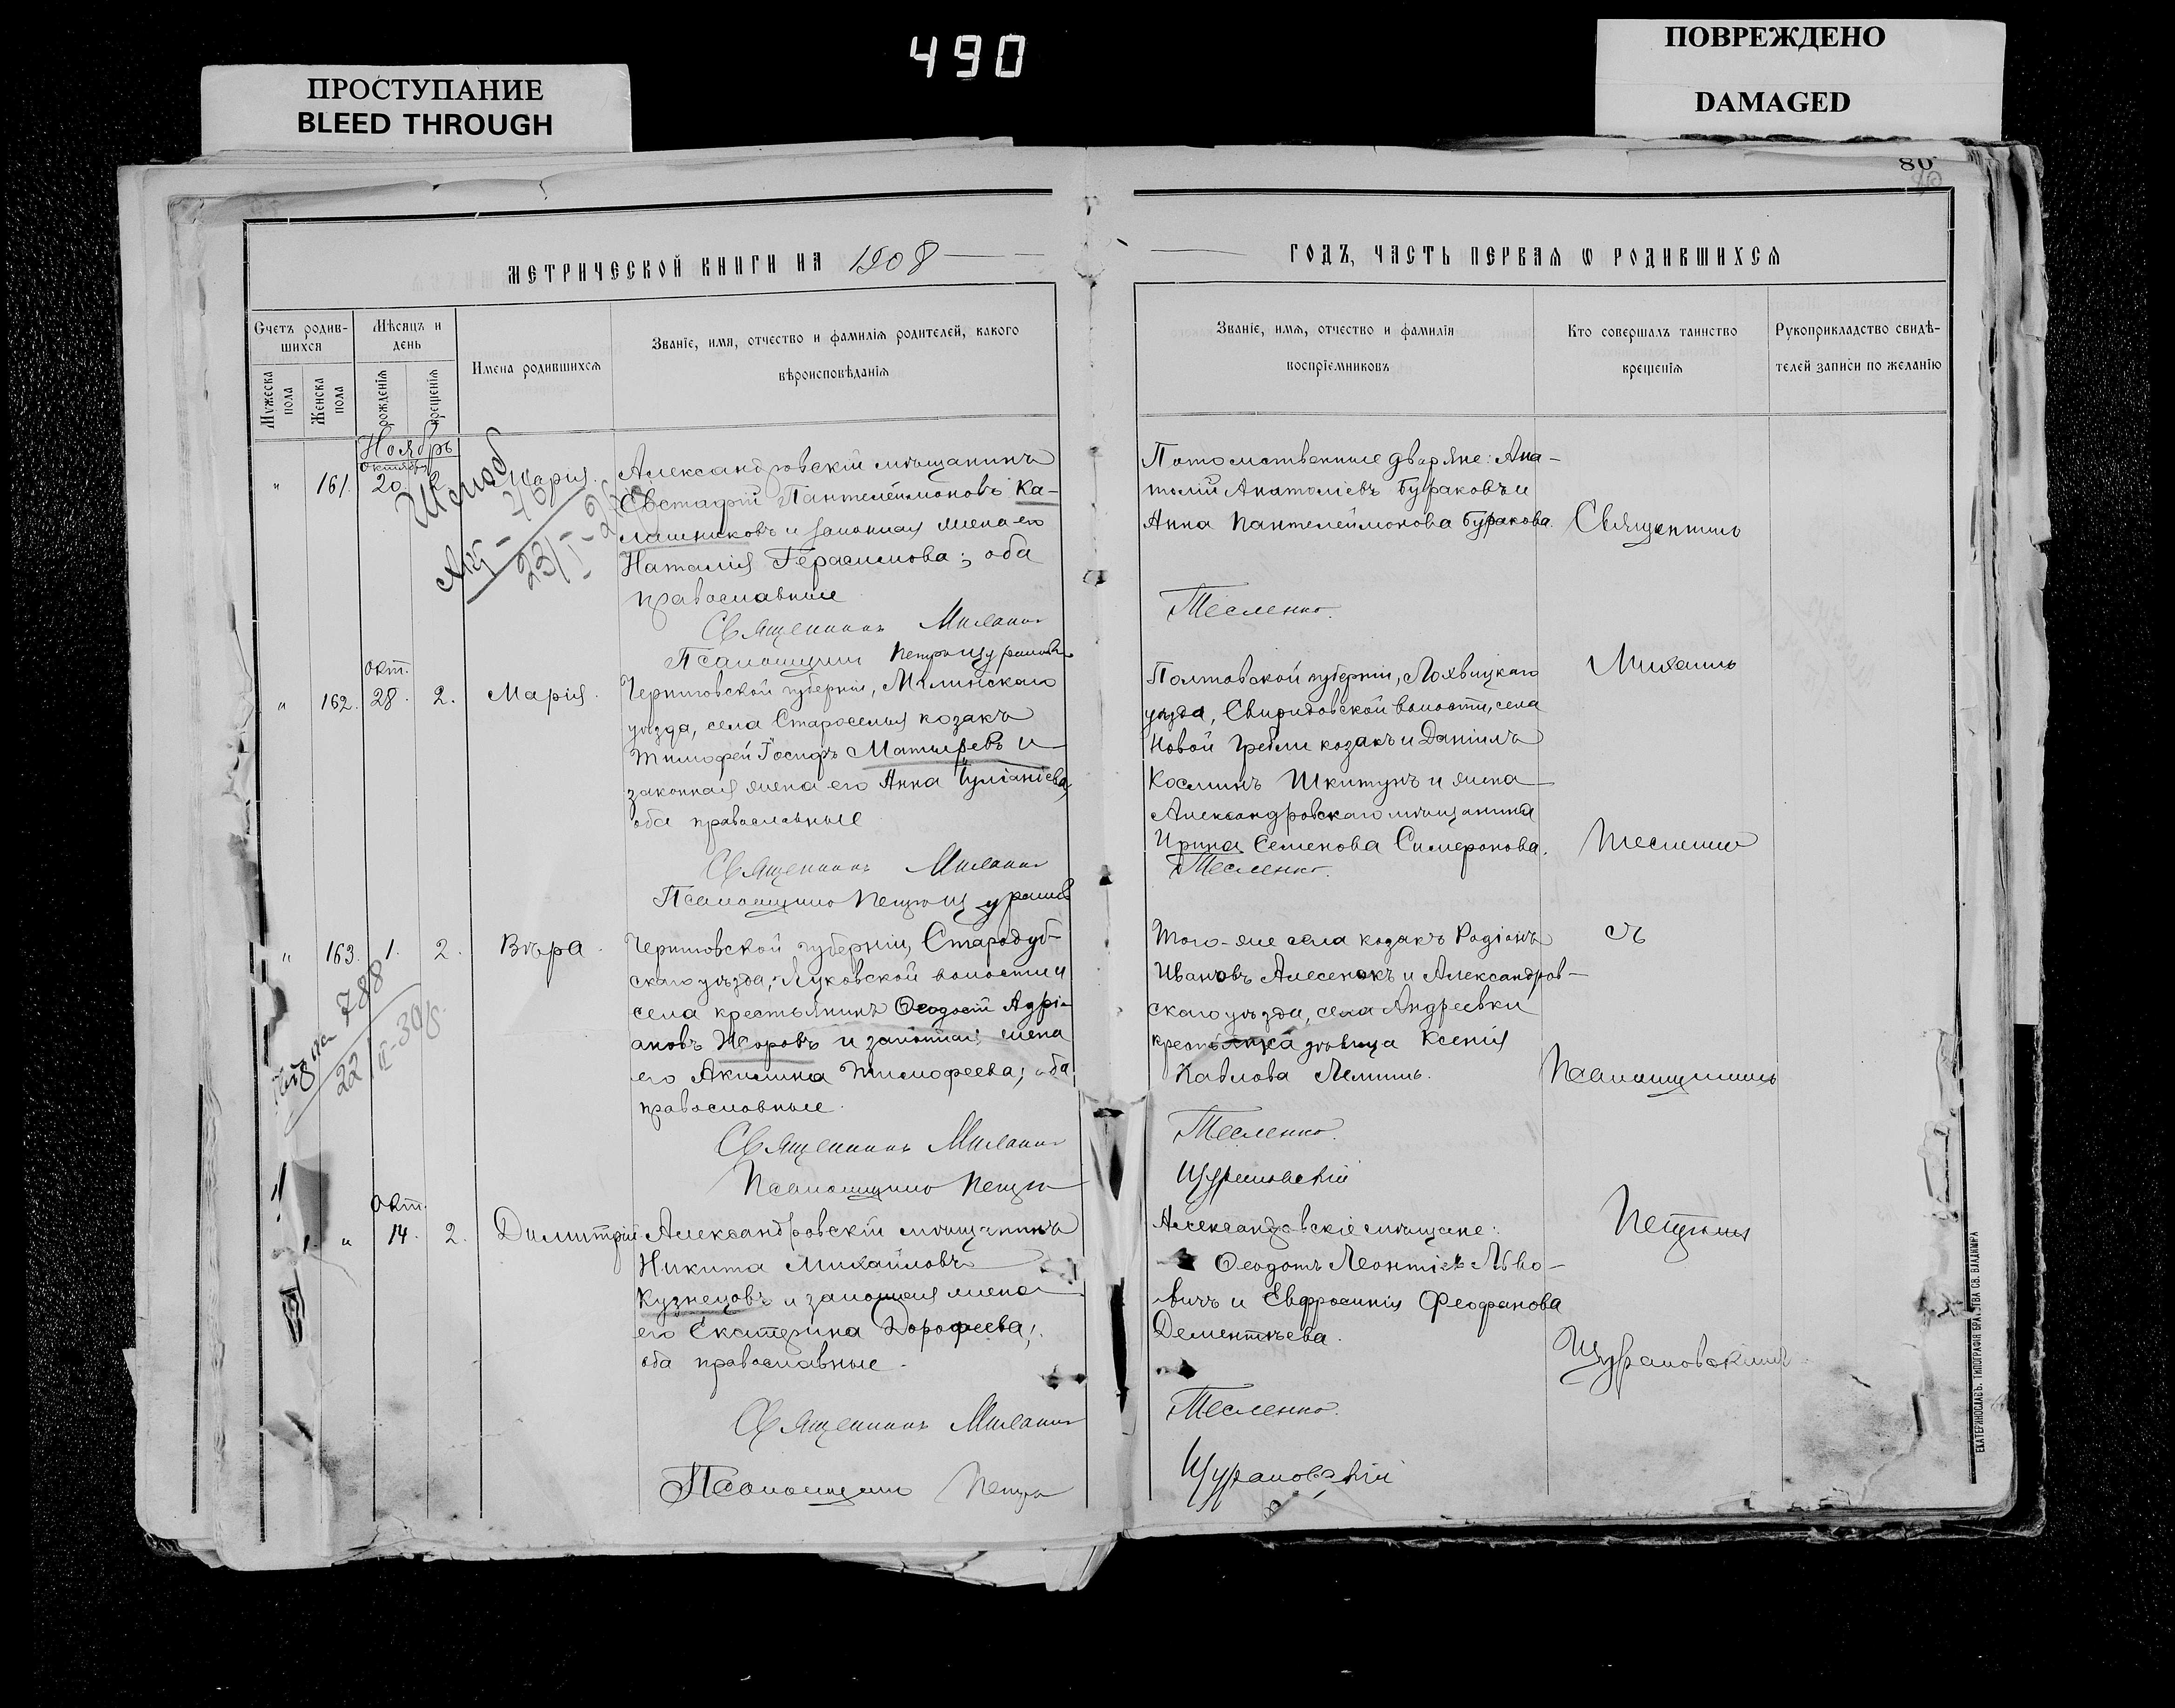 490
ПРОСТУПАНИЕ
BLEED THROUGH
ПОВРЕЖДЕНО
DAMAGED
80
МЕТРИЧЕСКОЙ КНИГИ НА 1908
ГОДЪ, ЧАСТЬ ПЕРВАЯ Ѡ РОДИВШИХСЯ
Счетъ родив-
шихся
Мужеска
пола
Женска
пола
Мѣсяцъ и
день
рожденія
крещенія
Имена родившихся
Званіе, имя, отчество и фамилія родителей, какого
вѣроисповѣданія
Званіе, имя, отчество и фамилія
воспріемниковъ
Кто совершалъ таинство
крещенія
Рукоприкладство свидѣ-
телей записи по желанію
Ноябрь
октября
" 161. 20. 2. Марія.
Александровскій мѣщанинъ
Евстафій Пантелеймоновъ Ка-
лашниковъ и законная жена его
Наталія Герасимова; оба
православные
Священникъ Михаилъ
Псаломщикъ Петръ
Потомственные дворяне: Ана-
толій Анатоліевъ Бураковъ и
Анна Пантелеймонова Буракова.
Тесленко.
Священникъ
Михаилъ
Тесленко
съ
Псаломщикомъ
Петромъ
Щурановскимъ
окт.
" 162. 28. 2. Марія.
Черниговской губерніи, Мглинскаго
уѣзда, села Староселья козакъ
Тимофей Іосифъ и
законная жена его Анна
оба православные
Священникъ Михаилъ
Псаломщикъ Петръ
Полтавской губерніи, Лохвицкаго
уѣзда, Свиридовской волости, села
Новой Гребли козакъ и Даніилъ
Косминъ Шкитунъ и жена
Александровскаго мѣщанина
Ирина Семенова
Тесленко.
" 163. 1. 2. Вѣра.
Черниговской губерніи, Стародуб-
скаго уѣзда, Луковской волости и
села крестьянинъ Ѳеодосій Адрі-
ановъ и законная жена
его Акилина Тимофеева; оба
православные.
Священникъ Михаилъ
Псаломщикъ Петръ
Того-же села козакъ Родіонъ
Ивановъ и Александров-
скаго уѣзда, села Андреевки
крестьянка дѣвица Ксенія
Павлова
Тесленко.
Щурановскій
788
22/II-
23/I-
окт.
" 14. 2. Димитрій
Александровскій мѣщанинъ
Никита Михайловъ
Кузнецовъ и законная жена
его Екатерина Дорофеева;
оба православные.
Священникъ Михаилъ
Псаломщикъ Петръ
Александровскіе мѣщане:
Ѳеодотъ Леонтіевъ Льво-
вичъ и Евфросинія Феофанова
Дементьева.
Тесленко.
Щурановскій
ЕКАТЕРИНОСЛАВЪ. ТИПОГРАФІЯ БРАТСТВА СВ. ВЛАДИМІРА